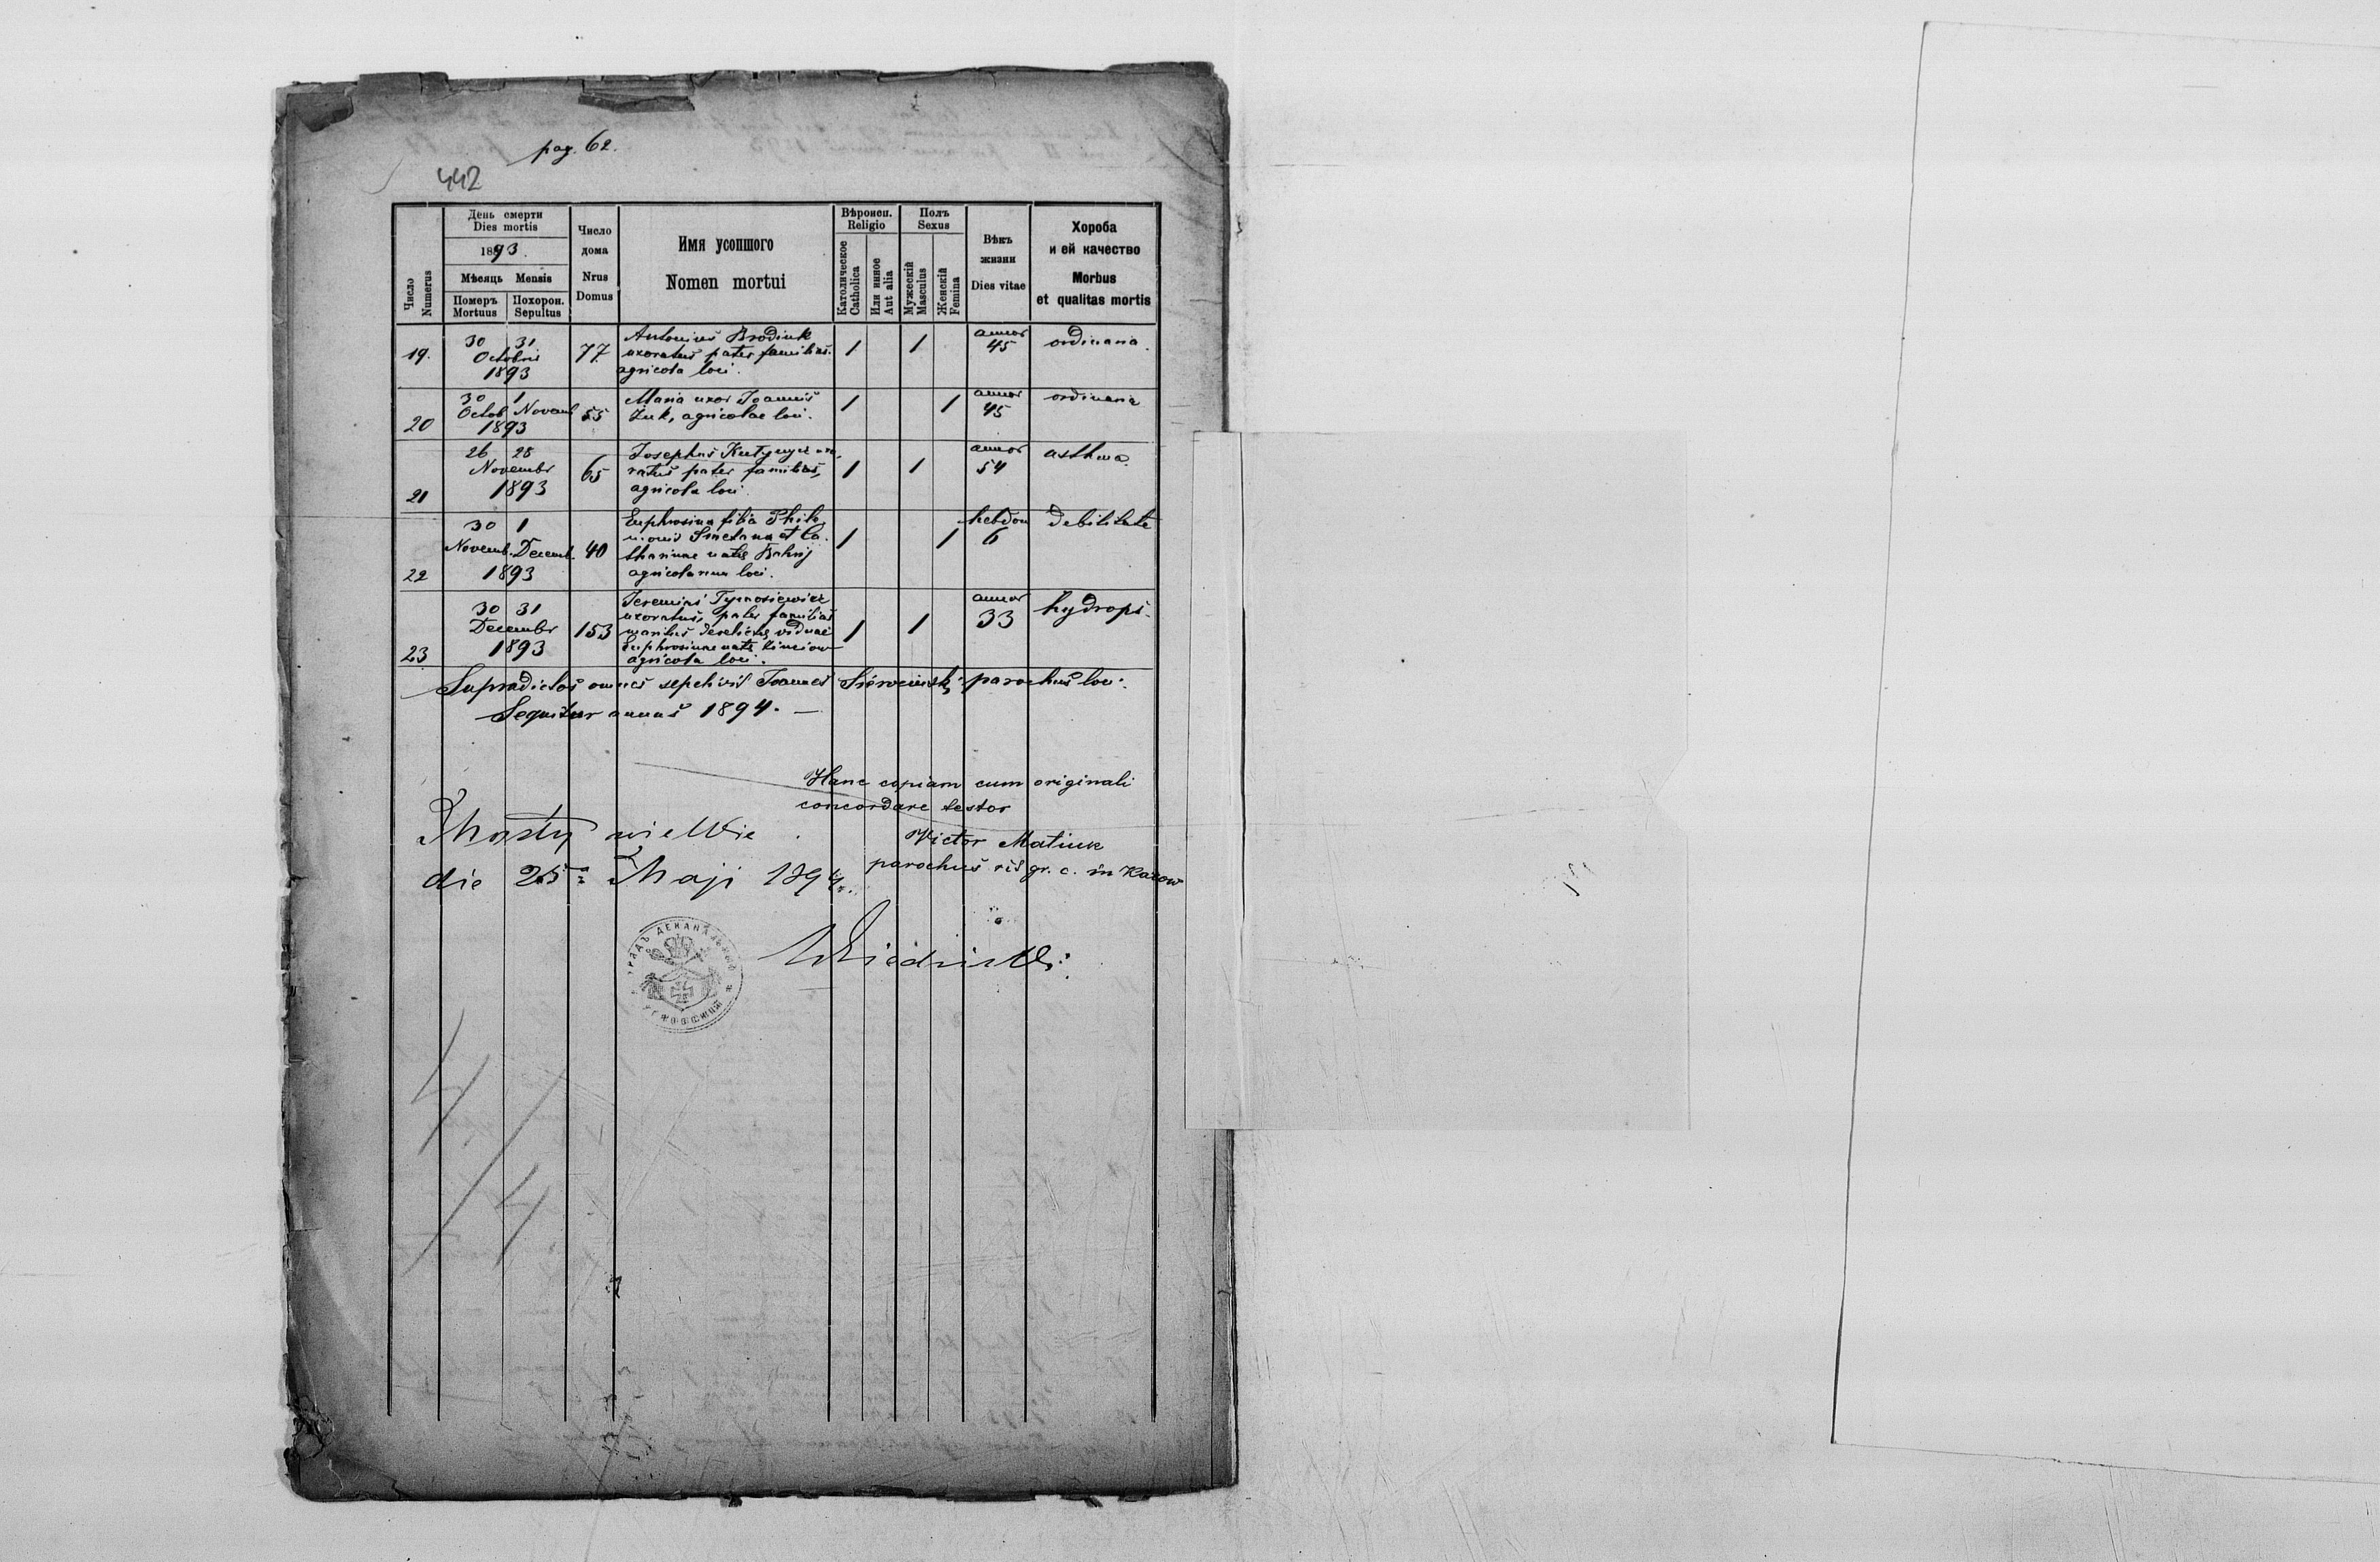 pag. 62.
442
Число
Numerus
День смерти
Dies mortis
1893.
Мѣсяць Mensis
Померъ
Mortuus
Похорон.
Sepultus
Число
дома
Nrus
Domus
Имя усопшого
Nomen mortui
Вѣроисп.
Religio
Католическое
Catholica
Или инное
Aut alia
Полъ
Sexus
Мужескій
Masculus
Женскій
Femina
Вѣкъ
жизни
Dies vitae
Хороба
и ей качество
Morbus
et qualitas mortis
19.
30 31
Octobris
1893
77
Antonius Brodiuk
uxoratus pater familias.
agricola loci.
1
1
annor
45
ordinaria.
20
30 1
Octob Novemb
1893
55
Maria uxor Joannis
Zuk, agricolae loci.
1
1
annor
45
ordinaria
21
26 28
Novembr
1893
65
Josephus uxo-
ratus pater familias,
agricola loci.
1
1
annor
54
asthma.
22
30 1
Novemb. Decemb.
1893
40
Euphrosina filia Phile-
monis Smetana et Ca-
tharinae natae
agricolarum loci.
1
1
hebdom
6
debilitate
23
30 31
Decembr
1893
153
Jeremias Tymosiewicz
uxoratus, pater familias
maritus derelictae viduae
Euphrosinae natae
agricola loci.
1
1
annor
33
hydrops.
Supradictos omnes sepelivit Joannes parochus loci.
Sequitur annus 1894. —
Hanc copiam cum originali
concordare testor
Victor Matiuk
parochus rit gr. c. in Karow
Mosty wielkie
die 25 Maji 1894.
ДЕКАНАЛЬНЫЙ